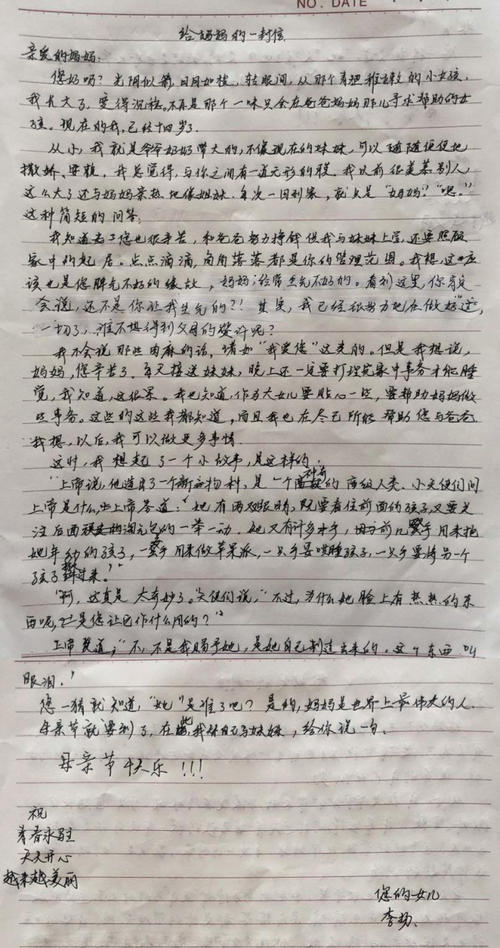 NO. DATE
给妈妈的一封信
亲爱的妈妈:
您好吗?光阴似箭,日月如梭,转眼间,从那个看理稚嫩的小女孩,
我长大了,变得沉稳。不再是那个一味只会在爸爸妈妈那儿寻求帮助的女
孩。现在的我,已经十四岁了。
从小,我就是爷爷奶奶带大的,不像现在的妹妹,可以随随便便地
撒娇、耍赖,我总觉得,与你之间有一道无形的膜。我以前很羡慕别人,
这么大了还与妈妈亲热地像姐妹。每次一回到家,就只是“妈妈?”“嗯。”
这种简短的问答。
我知道去了您也很辛苦,和爸爸努力挣钱供我与妹妹上学,还要照顾
家中的起居。点点滴滴,角角落落都是你的管理范围。我想,这应
该也是您脾气不好的缘故,妈妈,经常生气不好的。看到这里,你肯定
会说,还不是你让我生气的?!其实,我已经很努力地在做好这
一切了,谁不想得到父母的赞许呢?
我不会说那些肉麻的话,诸如“我爱您”这类的。但是我想说,
妈妈,您辛苦了。每天接送妹妹,晚上还一定要打理完家中事务才能睡
觉,我知道,这很累。我也知道,作为大女儿要贴心一些,要帮助妈妈做
些事务。这些的这些我都知道,而且我也在尽己所能帮助您与爸爸
我想,以后,我可以做更多事情。
这时,我想起了一个小故事,是这样的:
“上帝说,他造了一个新品物种,是一个神奇的高级人类。小天使们问
上帝是什么,上帝答道:‘她有两双眼睛,既要看住前面的孩子,又要关
注后面淘气包的一举一动。她又有许多才手,前几双手用来抱
她年幼的孩子,一双手用来做苹果派,一只手要哄睡孩子,一只手要将另一个
孩子拽过来。’”
“啊,这真是太奇妙了。”天使们说,“不过,为什么她脸上有热热的东
西呢,它是您让它作什么用的?”
上帝答道,“不,不是我赐予她,是她自己制造出来的。这个东西叫
眼泪。’
您一猜就知道,“她”是谁了吧?是的,妈妈是世界上最伟大的人。
母亲节就要到了,在此,我代自己与妹妹,给你说一句、
母亲节快乐!!!
祝
青春永驻
天天开心
越来越美丽
您的女儿
李杨、